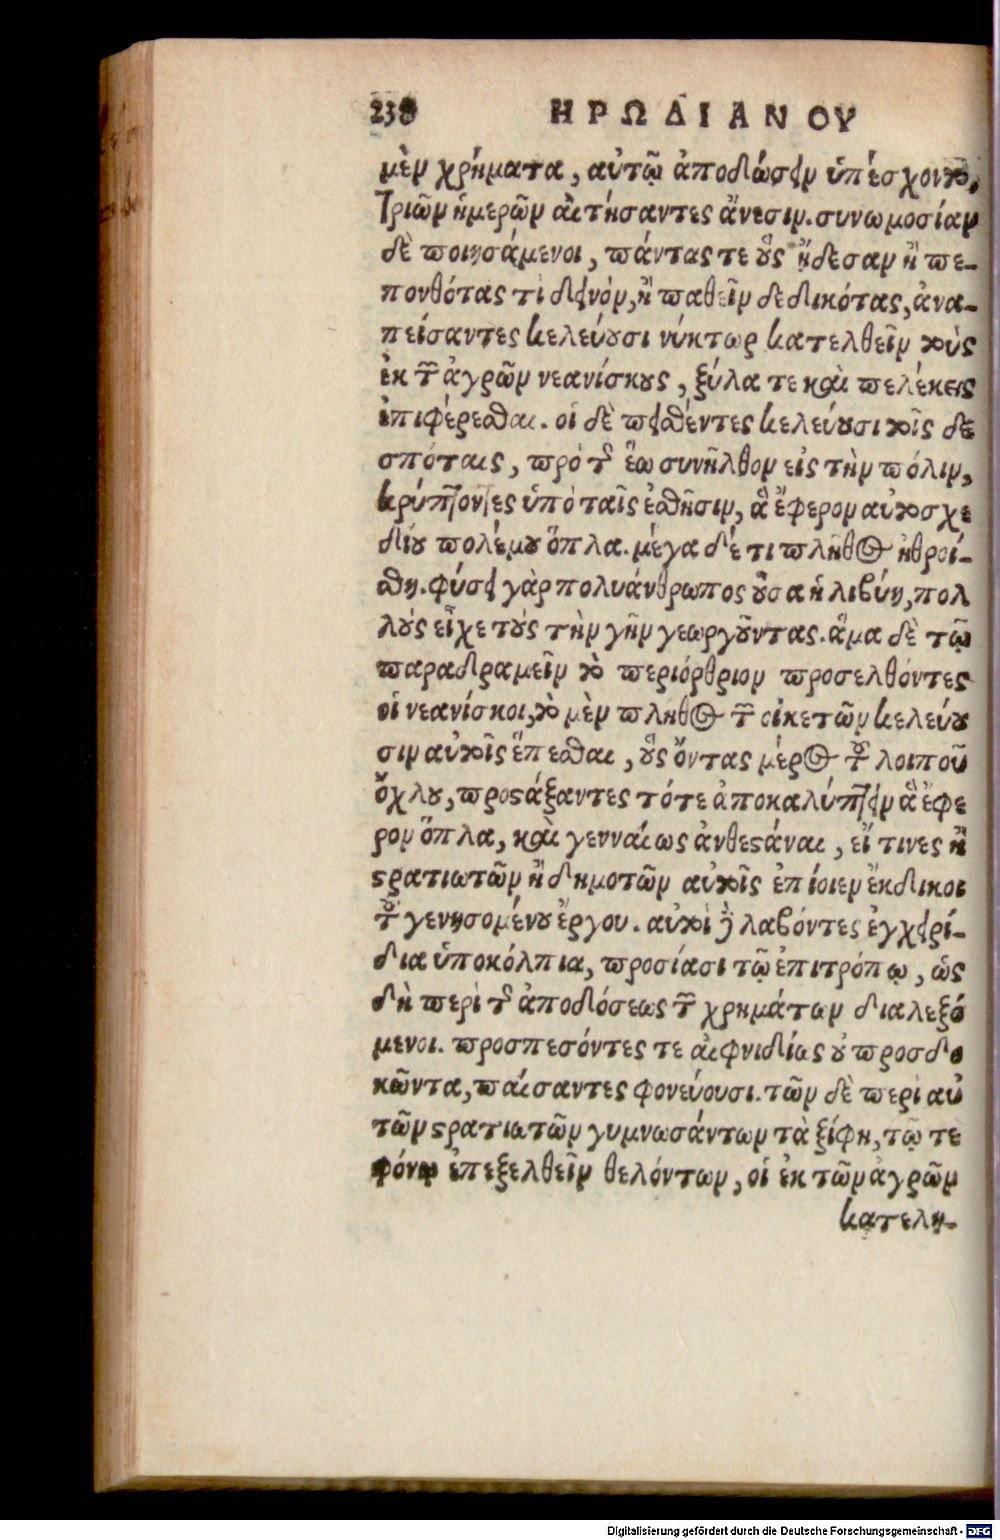 238 ΗΡΩΔΙΑΝΟΥ
μὲν χρήματα, αὐτῷ ἀποδώσειν ὑπέσχοντο,
τριῶν ἡμερῶν αἰτήσαντες ἄνεσιν. συνωμοσίαν
δὲ ποιησάμενοι, πάντας τε οὓς ᾔδεσαν ἢ πε-
πονθότας τὶ δεινὸν, ἢ παθεῖν δεδικότας, ἀνα-
πείσαντες κελεύουσι νύκτωρ κατελθεῖν τοὺς
ἐκ τῶν ἀγρῶν νεανίσκους, ξύλα τε καὶ πελέκεις
ἐπιφέρεσθαι. οἱ δὲ πεισθέντες κελεύουσι τοῖς δε
σπόταις, πρὸ τῆς ἕω συνῆλθον εἰς τὴν πόλιν,
κρύπτοντες ὑπὸ ταῖς ἐσθῆσιν, ἃ ἔφερον αὐτοσχε
δίου πολέμου ὅπλα. μέγα δέ τι πλῆθος ἠθροί-
σθη. φύσει γὰρ πολυάνθρωπος οὖσα ἡ λιβύη, πολ
λοὺς εἶχε τοὺς τὴν γῆν γεωργοῦντας. ἅμα δὲ τῷ
παραδραμεῖν τὸ περιόρθριον προσελθόντες
οἱ νεανίσκοι, τὸ μὲν πλῆθος τῶν οἰκετῶν κελεύου
σιν αὐτοῖς ἕπεσθαι, οὓς ὄντας μέρος τοῦ λοιποῦ
ὄχλου, προστάξαντες τότε ἀποκαλύπτειν ἃ ἔφε
ρον ὅπλα, καὶ γενναίως ἀνθεστάναι, εἴ τινες ἢ
στρατιωτῶν ἢ δημοτῶν αὐτοῖς ἐπίοιεν ἔκδικοι
τοῦ γενησομένου ἔργου. αὐτοὶ δὲ λαβόντες ἐγχειρί-
δια ὑποκόλπια, προσίασι τῷ ἐπιτρόπῳ, ὡς
δὴ περὶ τῆς ἀποδόσεως τῶν χρημάτων διαλεξό
μενοι. προσπεσόντες τε αἰφνιδίως οὐ προσδο
κῶντα, παίσαντες φονεύουσι. τῶν δὲ περὶ αὐ
τῶν στρατιωτῶν γυμνωσάντων τὰ ξίφη, τῷ τε
φόνῳ ἐπεξελθεῖν θελόντων, οἱ ἐκ τῶν ἀγρῶν
κατελη-
Digitalisierung gefördert durch die Deutsche Forschungsgemeinschaft - DFG